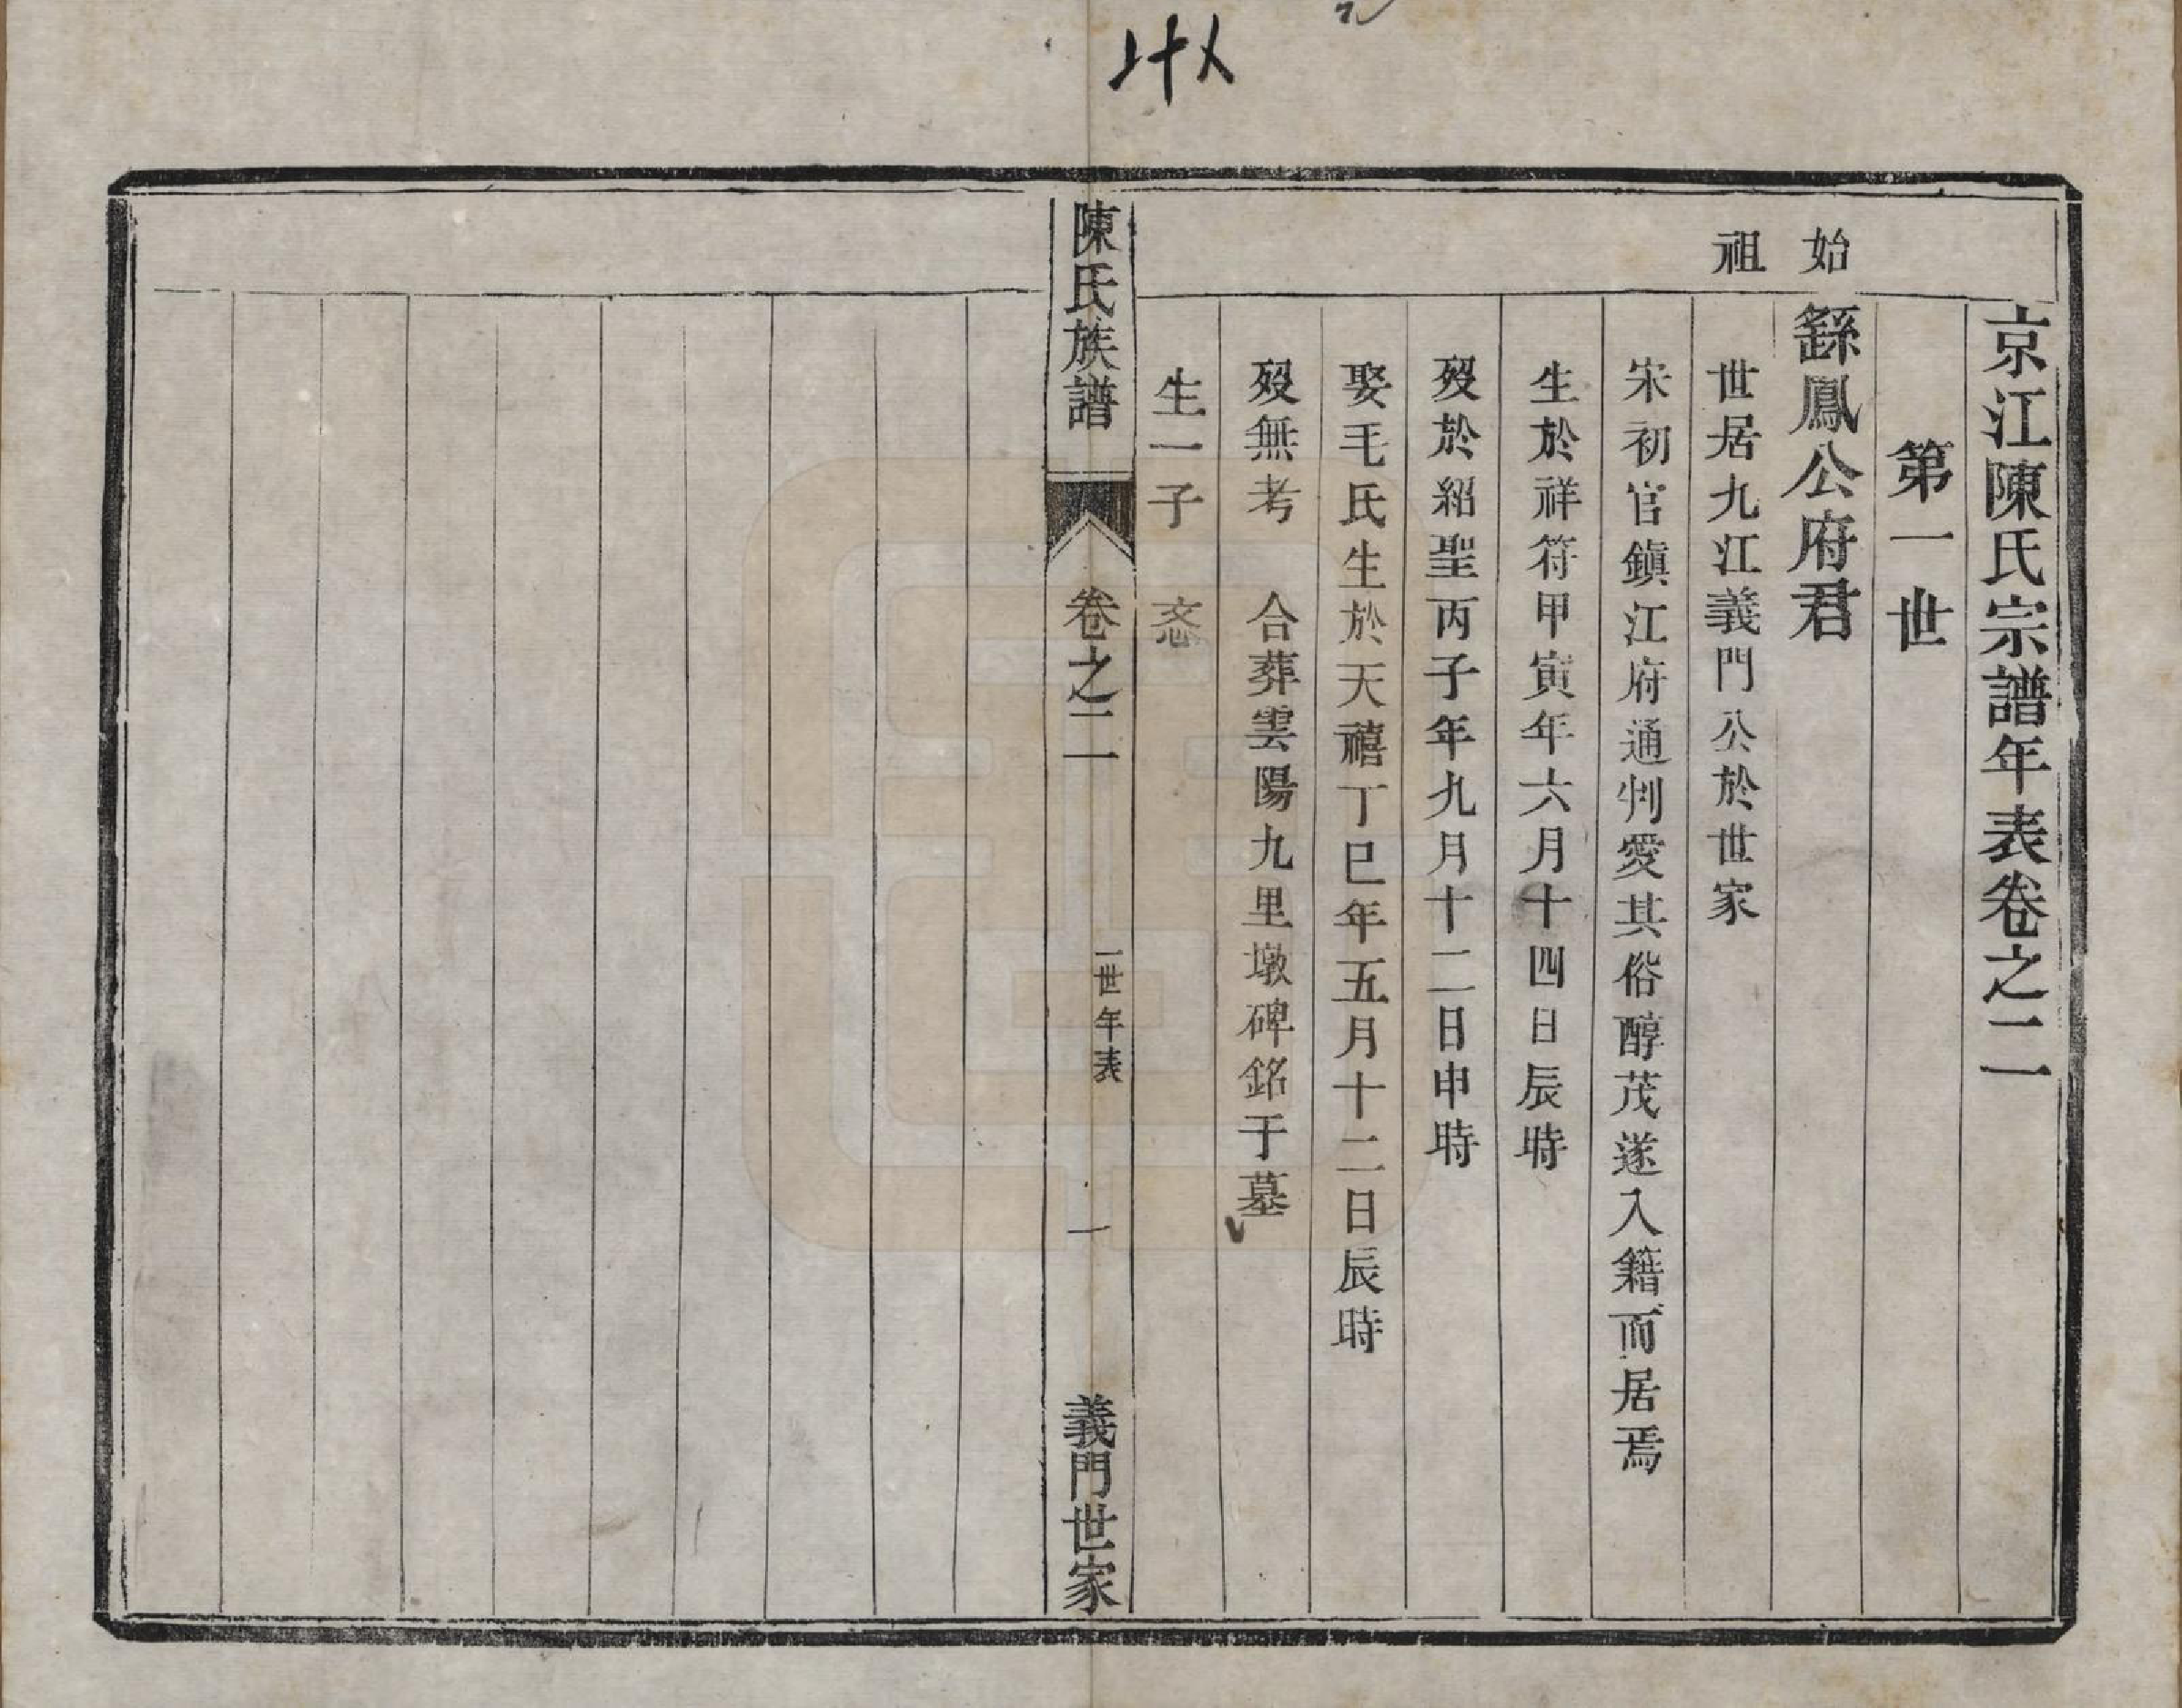 京江陳氏宗譜年表卷之二
第一世
始祖
繇鳳公府君
世居九江義門公於世家
宋初官鎭江府通判愛其俗醇茂遂入籍而居焉
生於祥符甲寅年六月十四日辰時
歿於紹聖丙子年九月十二日申時
娶毛氏生於天禧丁巳年五月十二日辰時
歿無考　合葬雲陽九里墩碑銘于墓
生一子　忞
陳氏族譜　卷之二　一世年表　一　義門世家